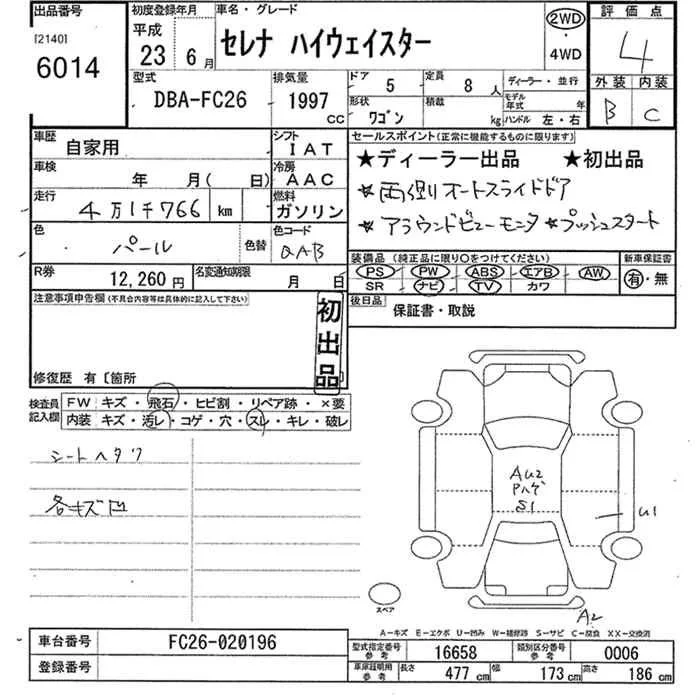 出品番号
[2140]
6014
初度登録年月
平成
23 6月
車名・グレード
セレナ ハイウェイスター
2WD
・
4WD
評価点
4
外装 内装
B C
型式
DBA-FC26
排気量
1997
CC
ドア
5
定員
8 人
ディーラー・並行
形状
ワゴン
積載
kg
モデル年式 年
ハンドル 左・右
車歴
自家用
シフト
IAT
車検
年 月( 日)
冷房
AAC
走行
4万1千766 km
燃料
ガソリン
色
パール
色替
色コード
QAB
R券
12,260円
名変通知期限
月 日
セールスポイント(正常に機能するものに限ります)
★ディーラー出品 ★初出品
★両側オートスライドドア
★アラウンドビューモニタ ★プッシュスタート
装備品 (純正品に限り○をつけてください)
新車保証書
PS PW ABS エアB AW
SR ナビ TV カワ
有・無
後日品
保証書・取説
注意事項申告欄 (不具合内容等は具体的に記入して下さい)
初出品
修復歴 有 [箇所
検査員記入欄
FW キズ・飛石・ヒビ割・リペア跡・×要
内装 キズ・汚レ・コゲ・穴・スレ・キレ・破レ
シートヘタリ
各キズ凹
AU2
Pハゲ
S1
U1
A2
スペア
A−キズ E−エクボ U−凹み W−補修跡 S−サビ C−腐食 XX−交換済
車台番号
FC26-020196
登録番号
型式指定番号
参考
16658
類別区分番号
参考
0006
車庫証明用
参考
長さ 477 cm 幅 173 cm 高さ 186 cm